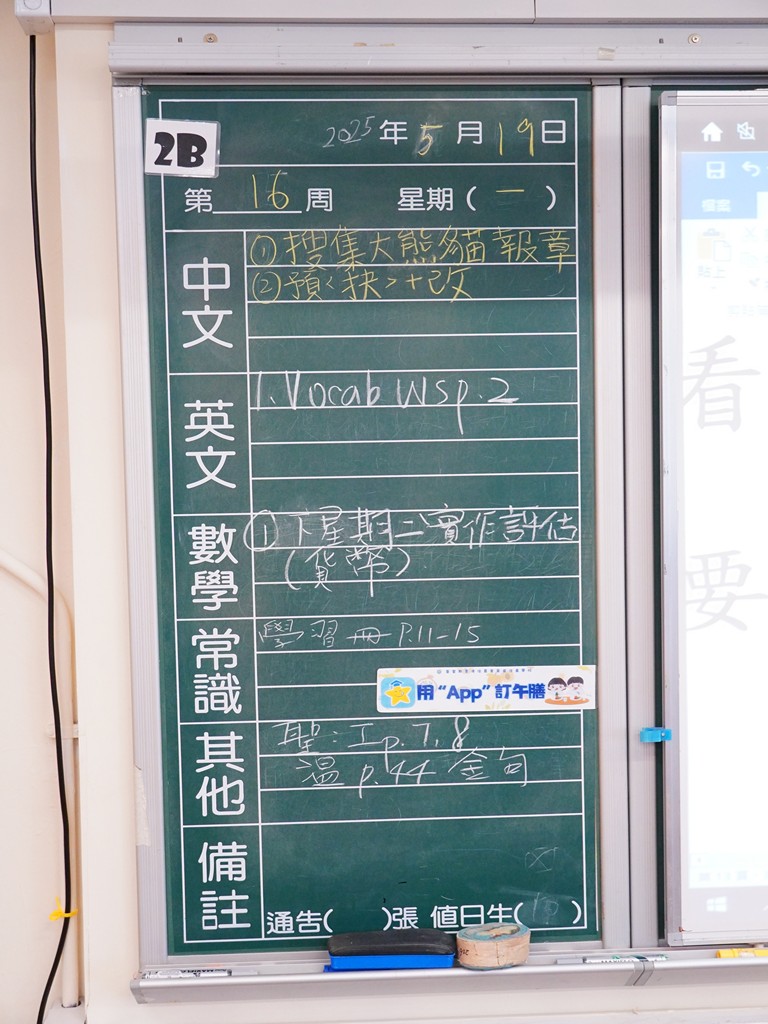 2B
2025年5月19日
第16周 星期(一)
中文
①搜集大熊貓報章
②預<抉>+改
英文
1. Vocab WS p.2
數學
①下星期二實作評估
(貨幣)
常識
學習冊 P.11-15
用“App”訂午膳
其他
聖：工p.7,8
溫 p.44 金句
備註
通告( )張 值日生( )
檔案
貼上
看
要